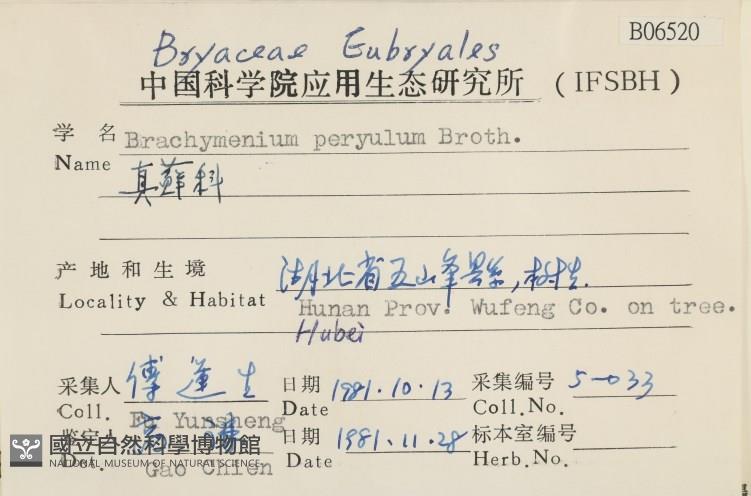 B06520
Bryaceae Eubryales
中国科学院应用生态研究所 (IFSBH)
学名 Brachymenium peryulum Broth.
Name 真蘚科
产地和生境 湖北省五峰縣,樹
Locality & Habitat Hunan Prov. Wufeng Co. on tree.
Hubei
采集人 傅 生 日期 1981.10.13 采集编号 5-033
Coll. Fu Yunsheng Date Coll.No.
鉴定人 高 日期 1981.11.28 标本室编号
Gao Chien Date Herb.No.
國立自然科學博物館
NATIONAL MUSEUM OF NATURAL SCIENCE